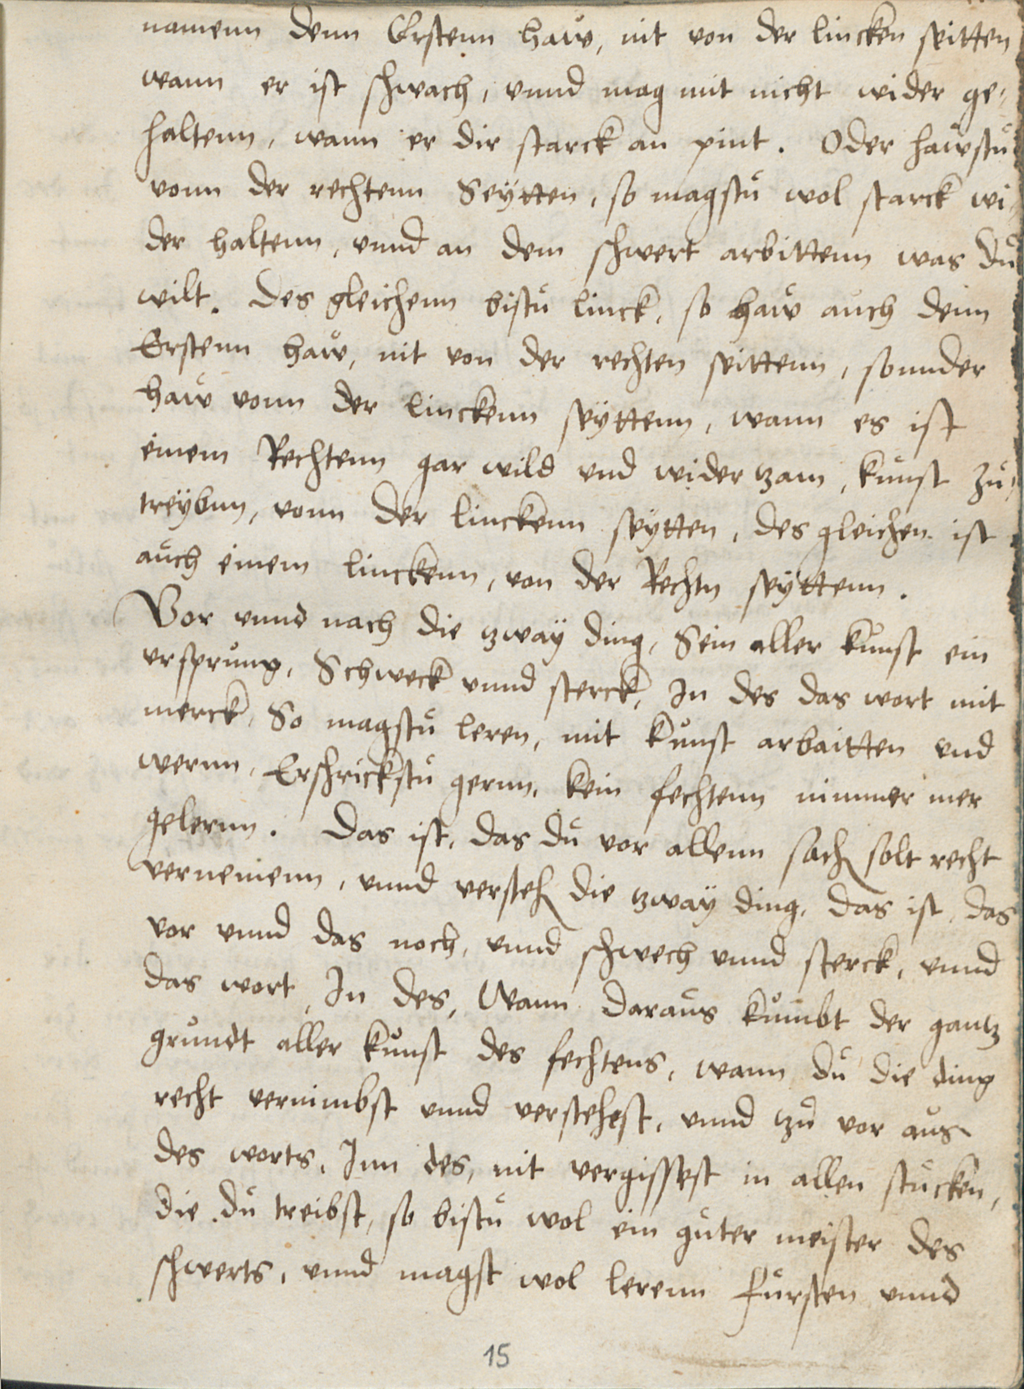 namenn denn Erstenn haẘ, nit von der lincken seitten
wann er ist schwach, vnnd mag mit nicht wider ge¬
haltenn, wann er dir starck an pint. Oder haẘstů
vonn der rechtenn Seÿtten, so magstů wol starck wi¬
der haltenn, vnnd an dem schwert arbittenn was dů
wilt. Des gleichenn bistů linck, so haẘ auch denn
Erstenn haẘ, nit von der rechten seittenn, sonnder
haẘ vonn der linckenn seÿttenn, wann es ist
einem Rechtenn gar wild vnd wider tzam, kůnst zů¬
treÿbnn, vonn der linckenn seÿtten, des gleichen ist
aůch einem linckenn, von der Rechtn seÿttenn.
Vor vnnd nach die tzwaÿ ding, Sein aller kůnst ein
vrsprůng, Schweck vnnd sterck, In des das wort mit
merck, So magstů leren, mit kůnst arbaitten vnd
wernn, Erschrickstů gernn, kein fechtenn nimmer mer
gelernn. Das ist, das dů vor allenn sach solt recht
vernemenn, vnnd versteh die tzwaÿ ding, das ist, das
vor vnnd das noch, vnnd schwech vnnd sterck, vnnd
das wort, In des, Wann daraůs kůmbt der gantz
grůndt aller kůnst des fechtens, wann dů die ding
recht vernimbst vnnd verstehest, vnnd tzů vor aůs
des worts, Inn des, nit vergissest in allen stůcken,
die dů treibst, so bistů wol ein gůter meister des
schwerts, vnnd magst wol lerenn fůrsten vnnd
15